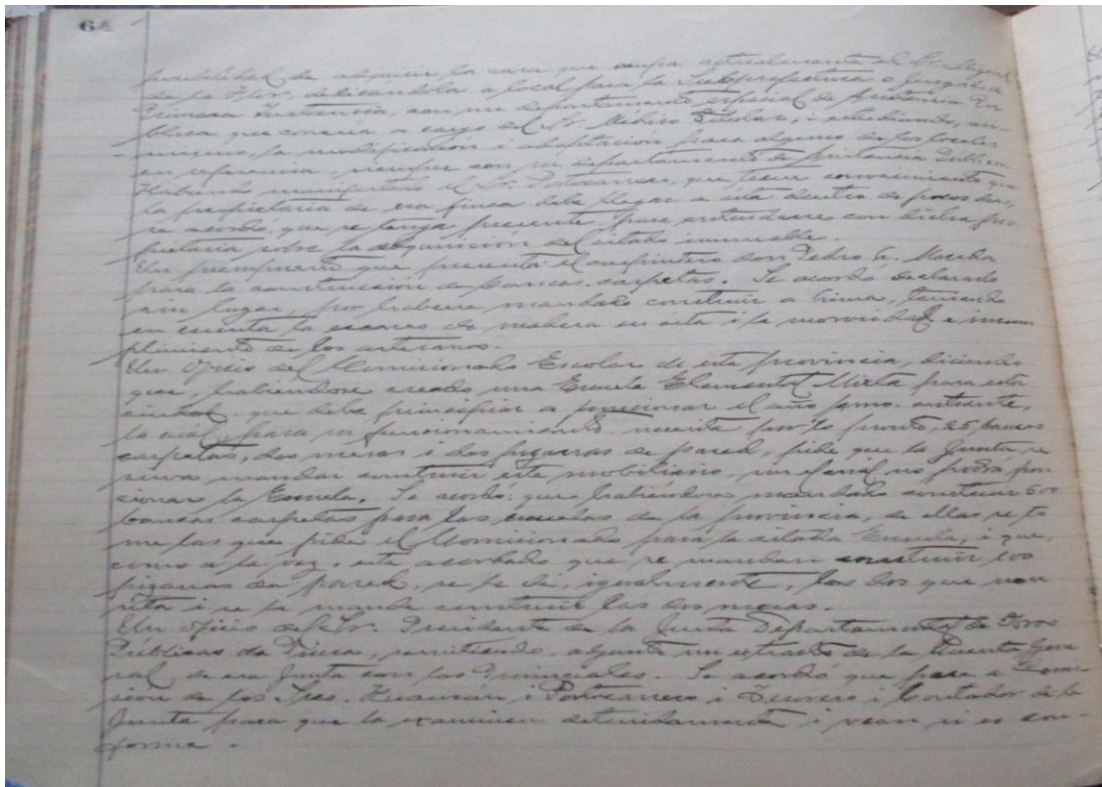 64
posibilidad de adquirir la casa que ocupa actualmente el Sr.
de la dedicandola a local para la Subprefectura o Juzgado de
Primera Instancia, con un departamento especial de Asistencia Pú-
blica que correria a cargo del Sr. Médico Titular, i estudiando, asi-
mismo, la modificación i adaptación para alguno de los locales
en referencia, siempre con un departamento de Asistencia Pública.
Habiendo manifestado el Sr. Portocarrero, que tiene conocimiento que
la propietaria de esa finca debe llegar a ésta dentro de pocos dias,
se acordó, que se tenga presente para entenderse con dicha pro-
pietaria sobre la adquisicion del citado inmueble.
Un presupuesto que presenta el carpintero don Pedro G. Macedo
para la construccion de bancas carpetas. Se acordó declararlo
sin lugar, por haberse mandado construir a Lima, teniendo
en cuenta la escases de madera en ésta i la morosidad e incum
plimiento de los artesanos.
Un Oficio del Comisionado Escolar de esta provincia, diciendo
que, habiéndose creado una Escuela Elemental Mixta para esta
ciudad, que debe principiar a funcionar el año pmo. entrante,
la cual, para su funcionamiento necesita por lo pronto, 25 bancas
carpetas, dos mesas i dos pizarras de pared, pide que la Junta se
sirva mandar construir este mobiliario, sin el cual no podra fun
cionar la Escuela. Se acordó: que habiéndose mandado construir 600
bancas carpetas para las escuelas de la provincia, de ellas se to
me las que pide el Comisionado para la citada Escuela, i que,
como a la vez, está acordado que se manden construir 100
pizarras de pared, se le dé, igualmente, las dos que nece
sita i se le mande construir las dos mesas.
Un oficio del Sr. Presidente de la Junta Departamental de Obras
Públicas de Piura, remitiendo, adjunto un extracto de la Cuenta Gene
ral de esa Junta con las Provinciales. Se acordó que pase a Comi
sion de los Sres. Huamán i Portocarrero i Tesorero i Contador de la
Junta para que la examinen detenidamente i vean si es con-
forme.